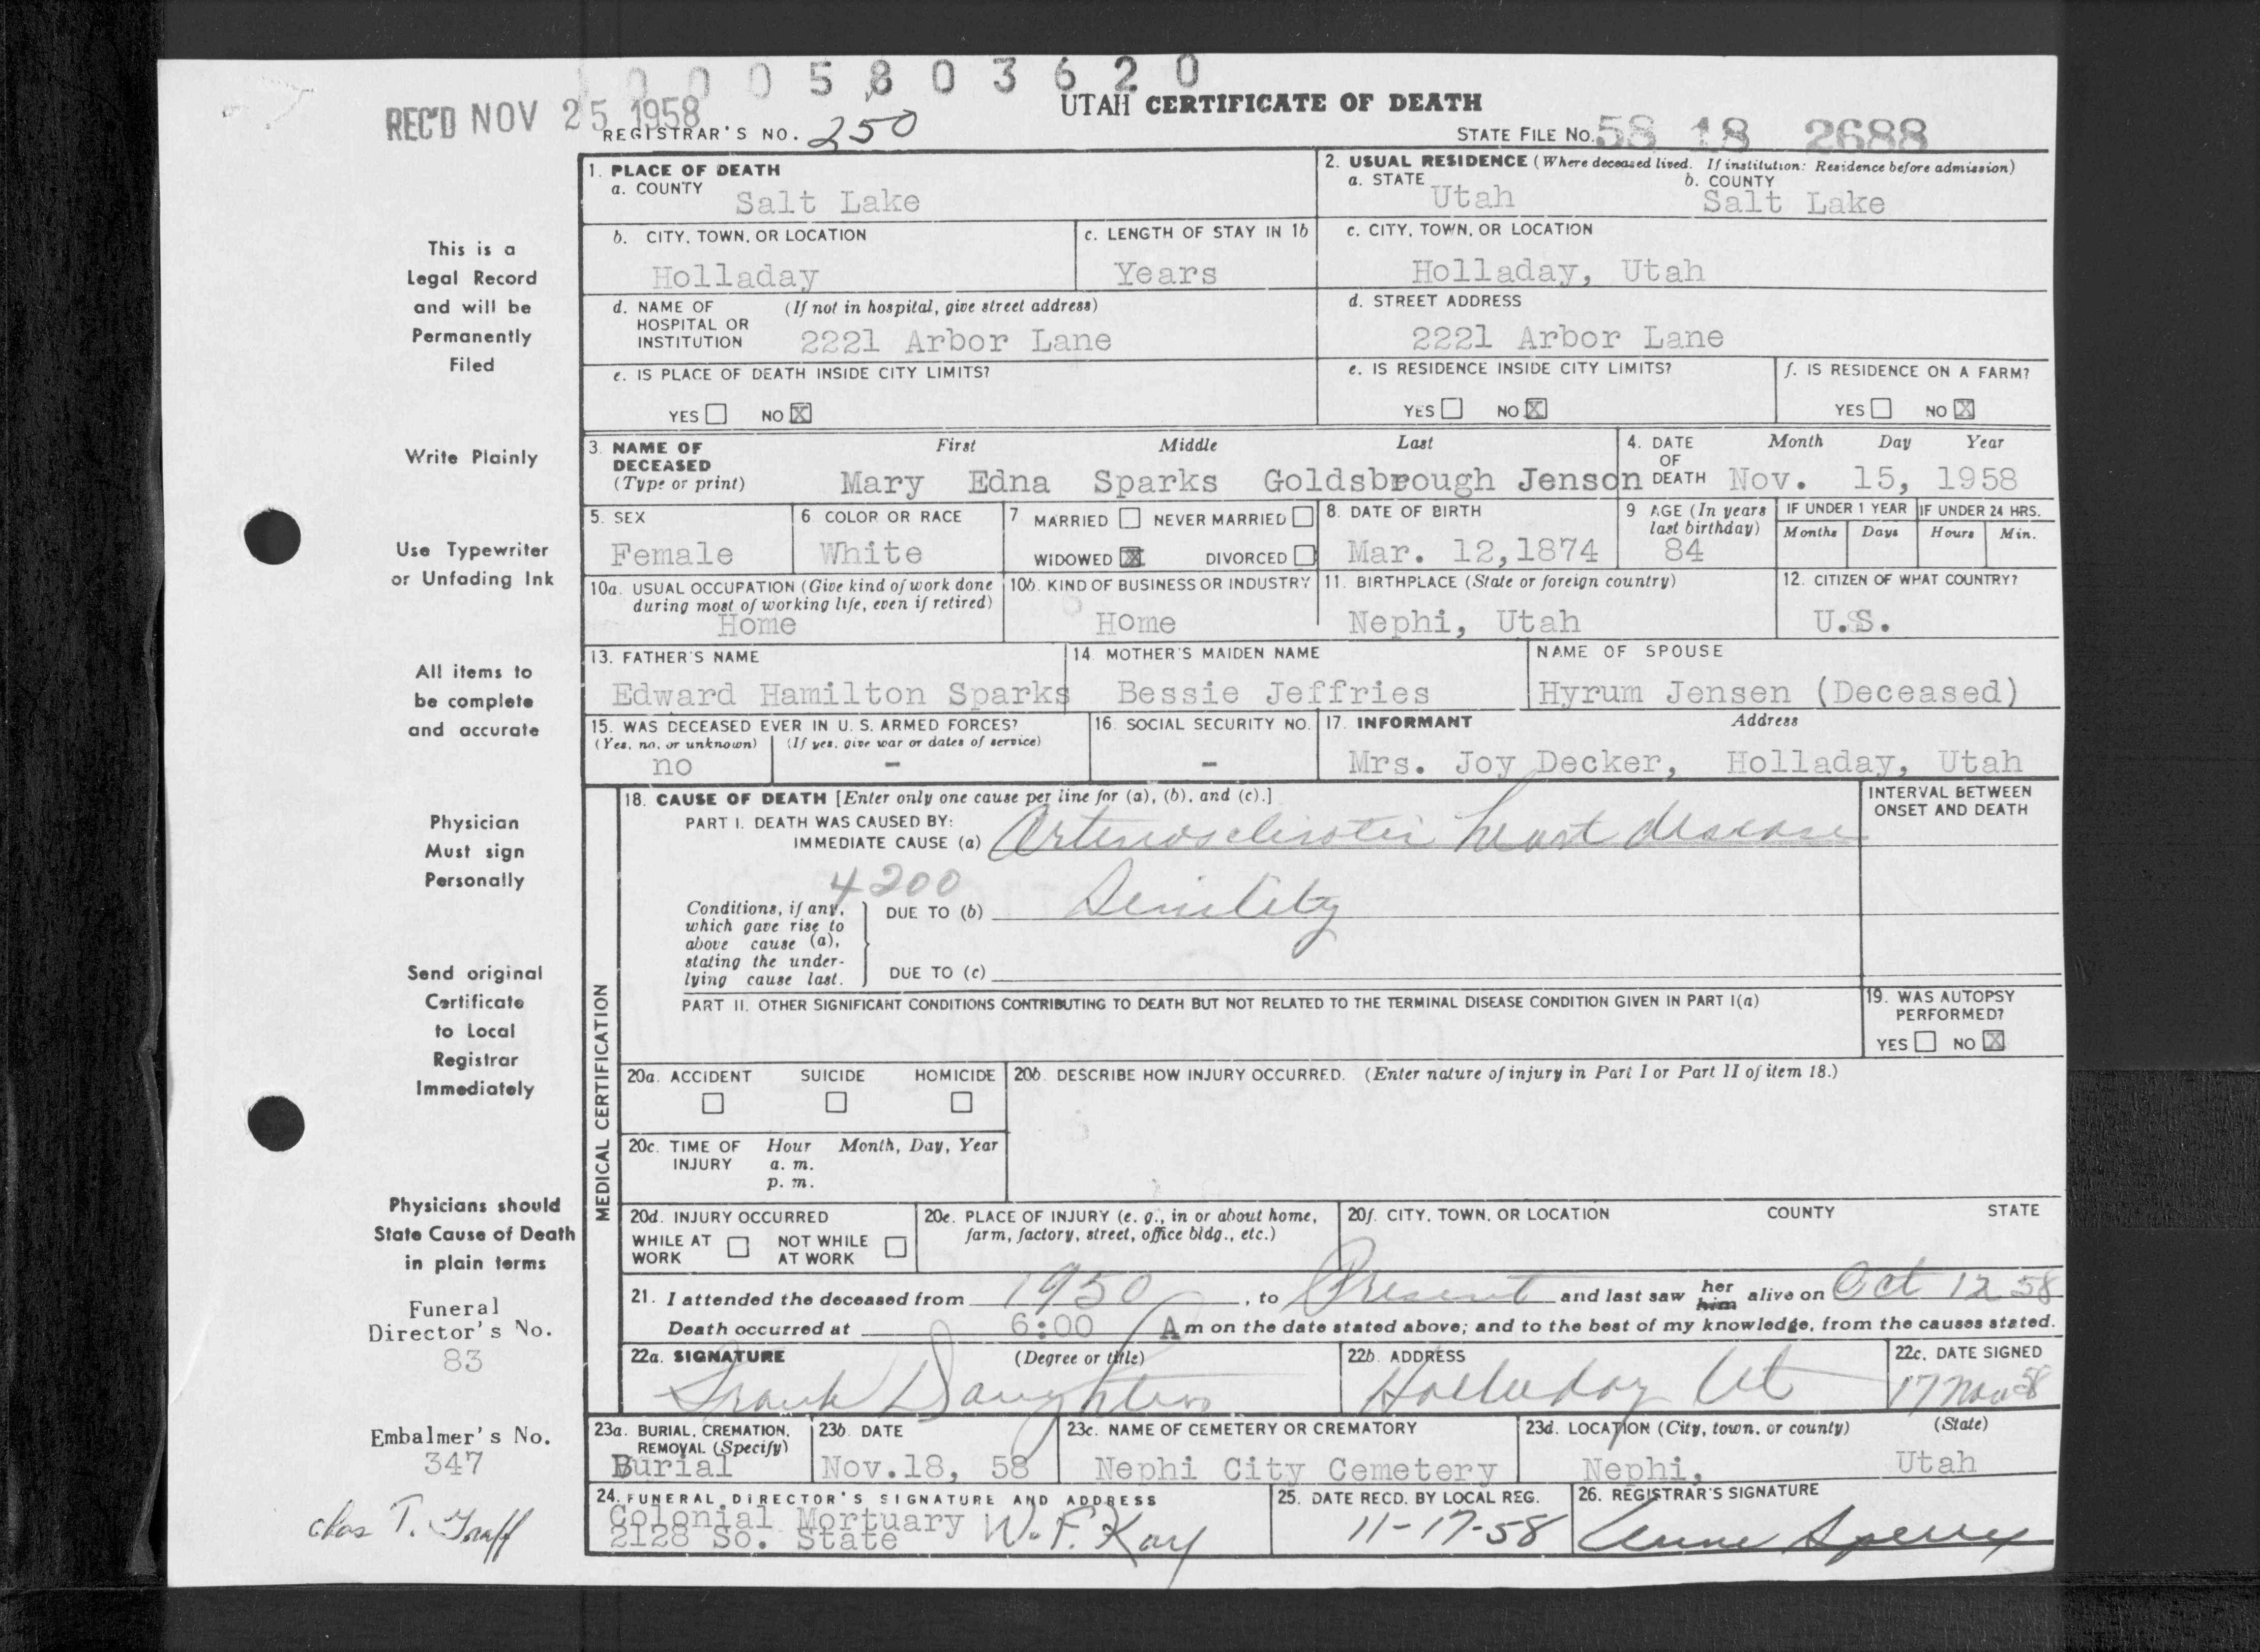 0 0 0 5 8 0 3 6 2 0
REC'D NOV 25 1958
UTAH CERTIFICATE OF DEATH
REGISTRAR'S NO. 250
STATE FILE NO. 58 18 2688
This is a
Legal Record
and will be
Permanently
Filed
Write Plainly
Use Typewriter
or Unfading Ink
All items to
be complete
and accurate
Physician
Must sign
Personally
Send original
Certificate
to Local
Registrar
Immediately
Physicians should
State Cause of Death
in plain terms
Funeral
Director's No.
83
Embalmer's No.
347
Chas T. Graff
1. PLACE OF DEATH
a. COUNTY Salt Lake
2. USUAL RESIDENCE (Where deceased lived. If institution: Residence before admission)
a. STATE Utah b. COUNTY Salt Lake
b. CITY, TOWN, OR LOCATION Holladay
c. LENGTH OF STAY IN 1b Years
c. CITY, TOWN, OR LOCATION Holladay, Utah
d. NAME OF HOSPITAL OR INSTITUTION (If not in hospital, give street address) 2221 Arbor Lane
d. STREET ADDRESS 2221 Arbor Lane
e. IS PLACE OF DEATH INSIDE CITY LIMITS?
YES NO X
e. IS RESIDENCE INSIDE CITY LIMITS?
YES NO X
f. IS RESIDENCE ON A FARM?
YES NO X
3. NAME OF DECEASED (Type or print) First Middle Last
Mary Edna Sparks Goldsbrough Jenson
4. DATE OF DEATH Month Day Year
Nov. 15, 1958
5. SEX Female
6 COLOR OR RACE White
7 MARRIED NEVER MARRIED
WIDOWED X DIVORCED
8. DATE OF BIRTH Mar. 12,1874
9 AGE (In years last birthday) 84
IF UNDER 1 YEAR Months Days
IF UNDER 24 HRS. Hours Min.
10a. USUAL OCCUPATION (Give kind of work done during most of working life, even if retired) Home
10b. KIND OF BUSINESS OR INDUSTRY Home
11. BIRTHPLACE (State or foreign country) Nephi, Utah
12. CITIZEN OF WHAT COUNTRY? U.S.
13. FATHER'S NAME Edward Hamilton Sparks
14. MOTHER'S MAIDEN NAME Bessie Jeffries
NAME OF SPOUSE Hyrum Jensen (Deceased)
15. WAS DECEASED EVER IN U. S. ARMED FORCES?
(Yes, no, or unknown) (If yes, give war or dates of service)
no -
16. SOCIAL SECURITY NO. -
17. INFORMANT Address
Mrs. Joy Decker, Holladay, Utah
MEDICAL CERTIFICATION
18. CAUSE OF DEATH [Enter only one cause per line for (a), (b), and (c).]
INTERVAL BETWEEN ONSET AND DEATH
PART I. DEATH WAS CAUSED BY:
IMMEDIATE CAUSE (a) Arteriosclerotic heart disease
4200
Conditions, if any, which gave rise to above cause (a), stating the underlying cause last.
DUE TO (b) Senility
DUE TO (c)
PART II. OTHER SIGNIFICANT CONDITIONS CONTRIBUTING TO DEATH BUT NOT RELATED TO THE TERMINAL DISEASE CONDITION GIVEN IN PART I(a)
19. WAS AUTOPSY PERFORMED?
YES NO X
20a. ACCIDENT SUICIDE HOMICIDE
20b. DESCRIBE HOW INJURY OCCURRED. (Enter nature of injury in Part I or Part II of item 18.)
20c. TIME OF INJURY Hour Month, Day, Year
a. m.
p. m.
20d. INJURY OCCURRED
WHILE AT WORK NOT WHILE AT WORK
20e. PLACE OF INJURY (e. g., in or about home, farm, factory, street, office bldg., etc.)
20f. CITY, TOWN, OR LOCATION COUNTY STATE
21. I attended the deceased from 1950, to Present and last saw her him alive on Oct 12 58
Death occurred at 6:00 A m on the date stated above; and to the best of my knowledge, from the causes stated.
22a. SIGNATURE (Degree or title)
Frank Daughters
22b. ADDRESS Holladay Ut
22c. DATE SIGNED 17 Nov 58
23a. BURIAL, CREMATION, REMOVAL (Specify) Burial
23b. DATE Nov.18, 58
23c. NAME OF CEMETERY OR CREMATORY Nephi City Cemetery
23d. LOCATION (City, town, or county) (State)
Nephi, Utah
24. FUNERAL DIRECTOR'S SIGNATURE AND ADDRESS
Colonial Mortuary W. F. Kay
2128 So. State
25. DATE RECD. BY LOCAL REG. 11-17-58
26. REGISTRAR'S SIGNATURE
Anne Sperry